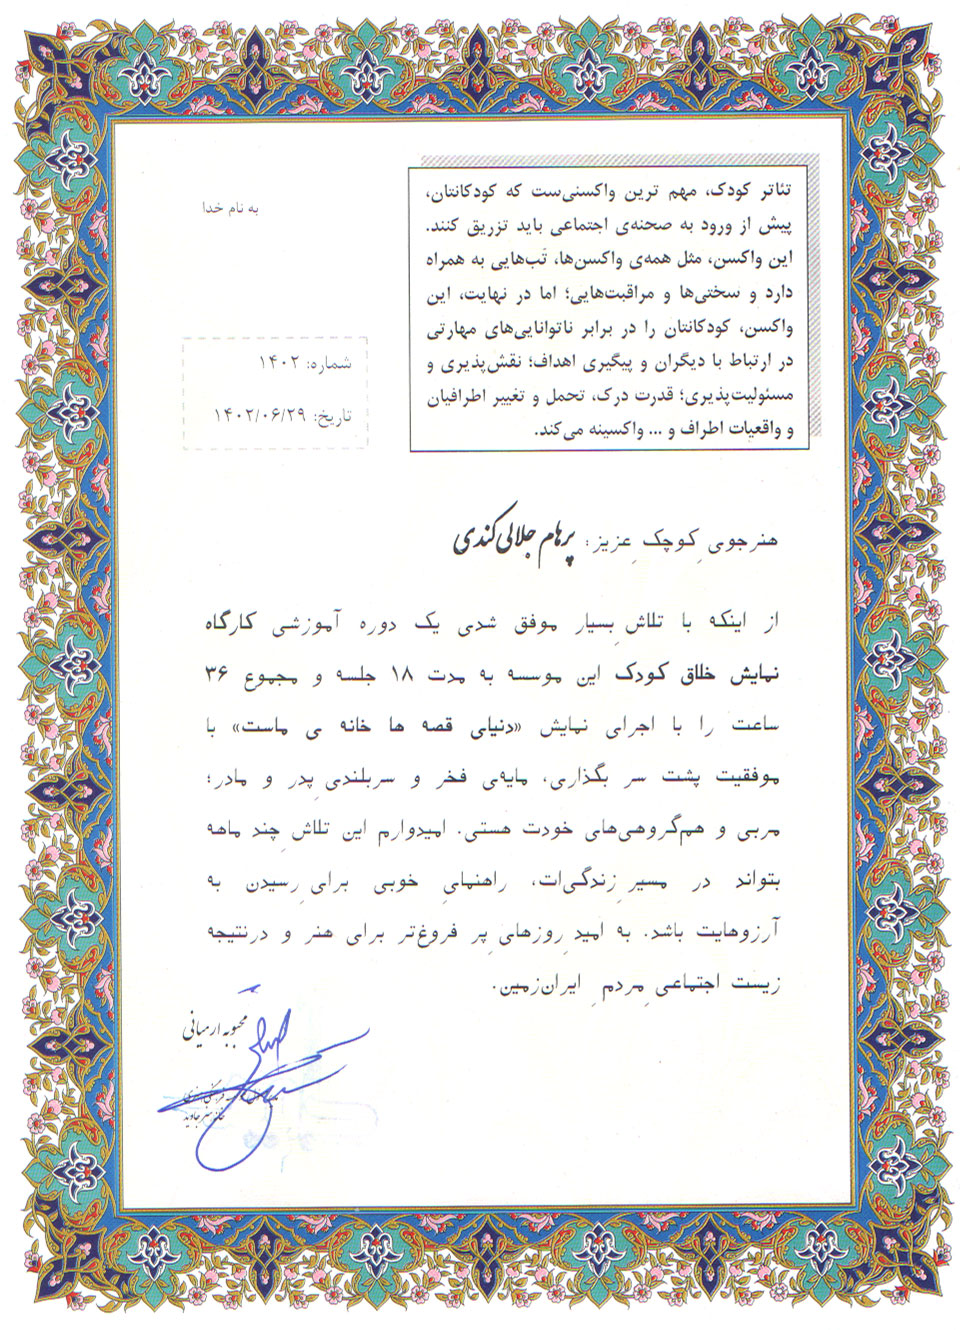 به نام خدا
تئاتر کودک، مهم ترین واکسنی‌ست که کودکانتان،
پیش از ورود به صحنه‌ی اجتماعی باید تزریق کنند.
این واکسن، مثل همه‌ی واکسن‌ها، تَب‌هایی به همراه
دارد و سختی‌ها و مراقبت‌هایی؛ اما در نهایت، این
واکسن، کودکانتان را در برابر ناتوانایی‌های مهارتی
در ارتباط با دیگران و پیگیری اهداف؛ نقش‌پذیری و
مسئولیت‌پذیری؛ قدرت درک، تحمل و تغییر اطرافیان
و واقعیات اطراف و ... واکسینه می‌کند.
شماره: ۱۴۰۲
تاریخ: ۱۴۰۲/۰۶/۲۹
هنرجوی کوچکِ عزیز: پرهام جلالی کندی
از اینکه با تلاشِ بسیار موفق شدی یک دوره آموزشی کارگاه
نمایش خلاق کودک این موسسه به مدت ۱۸ جلسه و مجموع ۳۶
ساعت را با اجرای نمایش «دنیای قصه ها خانه ی ماست» با
موفقیت پشت سر بگذاری، مایه‌ی فخر و سربلندیِ پدر و مادر؛
مربی و هم‌گروهی‌های خودت هستی. امیدوارم این تلاشِ چند ماهه
بتواند در مسیرِ زندگی‌ات، راهنمایِ خوبی برای رسیدن به
آرزوهایت باشد. به امیدِ روزهایِ پر فروغ‌تر برای هنر و درنتیجه
زیست اجتماعیِ مردمِ ایران‌زمین.
محبوبه ارمیانی